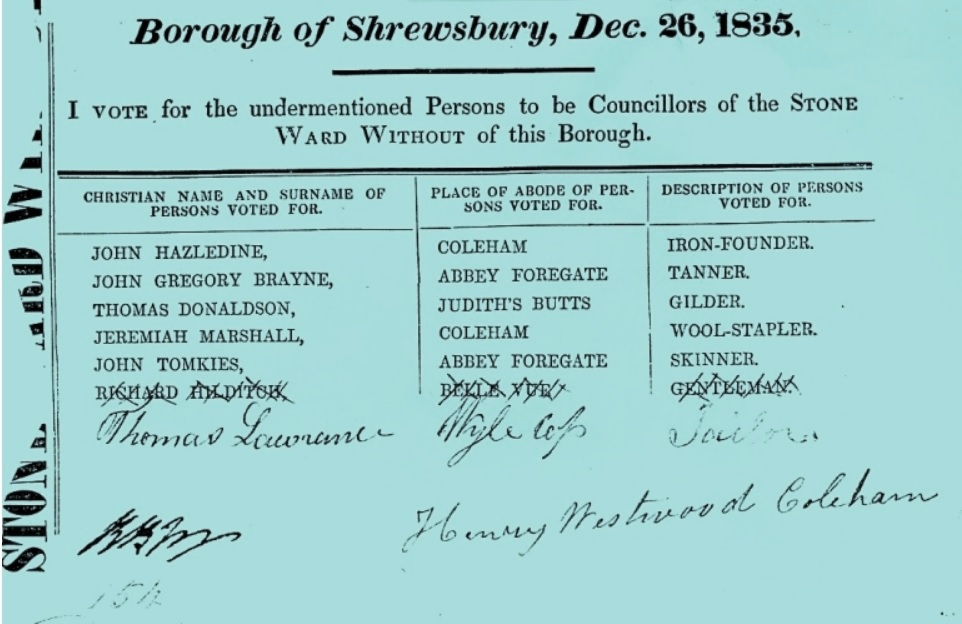 Borough of Shrewsbury, Dec. 26, 1835.
I VOTE for the undermentioned Persons to be Councillors of the STONE
WARD WITHOUT of this Borough.
CHRISTIAN NAME AND SURNAME OF PERSONS VOTED FOR. PLACE OF ABODE OF PER-SONS VOTED FOR. DESCRIPTION OF PERSONS VOTED FOR.
JOHN HAZLEDINE, COLEHAM IRON-FOUNDER.
JOHN GREGORY BRAYNE, ABBEY FOREGATE TANNER.
THOMAS DONALDSON, JUDITH'S BUTTS GILDER.
JEREMIAH MARSHALL, COLEHAM WOOL-STAPLER.
JOHN TOMKIES, ABBEY FOREGATE SKINNER.
RICHARD HILDITCH, BELLE VUE GENTLEMAN.
Thomas Lawrance Wyle Cop Tailor
Henry Westwood Coleham
154
STONE WARD